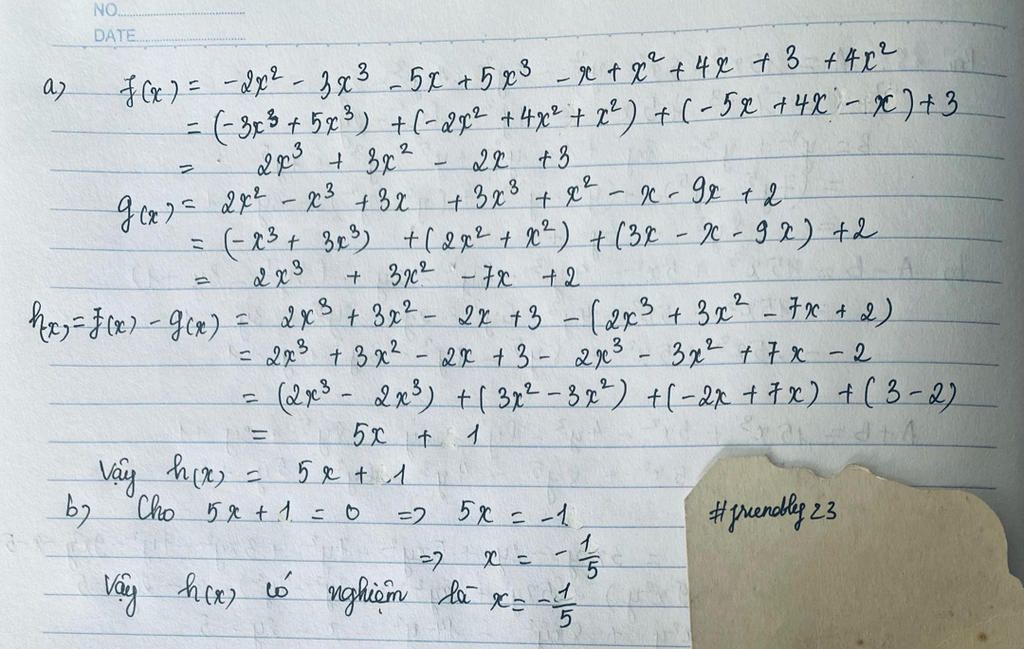 NO.
DATE
a) f(x) = -2x² - 3x³ - 5x + 5x³ - x + x² + 4x + 3 + 4x²
= (-3x³ + 5x³) + (-2x² + 4x² + x²) + (-5x + 4x - x) + 3
= 2x³ + 3x² - 2x + 3
g(x) = 2x² - x³ + 3x + 3x³ + x² - x - 9x + 2
= (-x³ + 3x³) + (2x² + x²) + (3x - x - 9x) + 2
= 2x³ + 3x² - 7x + 2
h(x) = f(x) - g(x) = 2x³ + 3x² - 2x + 3 - (2x³ + 3x² - 7x + 2)
= 2x³ + 3x² - 2x + 3 - 2x³ - 3x² + 7x - 2
= (2x³ - 2x³) + (3x² - 3x²) + (-2x + 7x) + (3 - 2)
= 5x + 1
Vậy h(x) = 5x + 1
b) Cho 5x + 1 = 0 => 5x = -1
=> x = -1/5
Vậy h(x) có nghiệm là x = -1/5
#friendly23